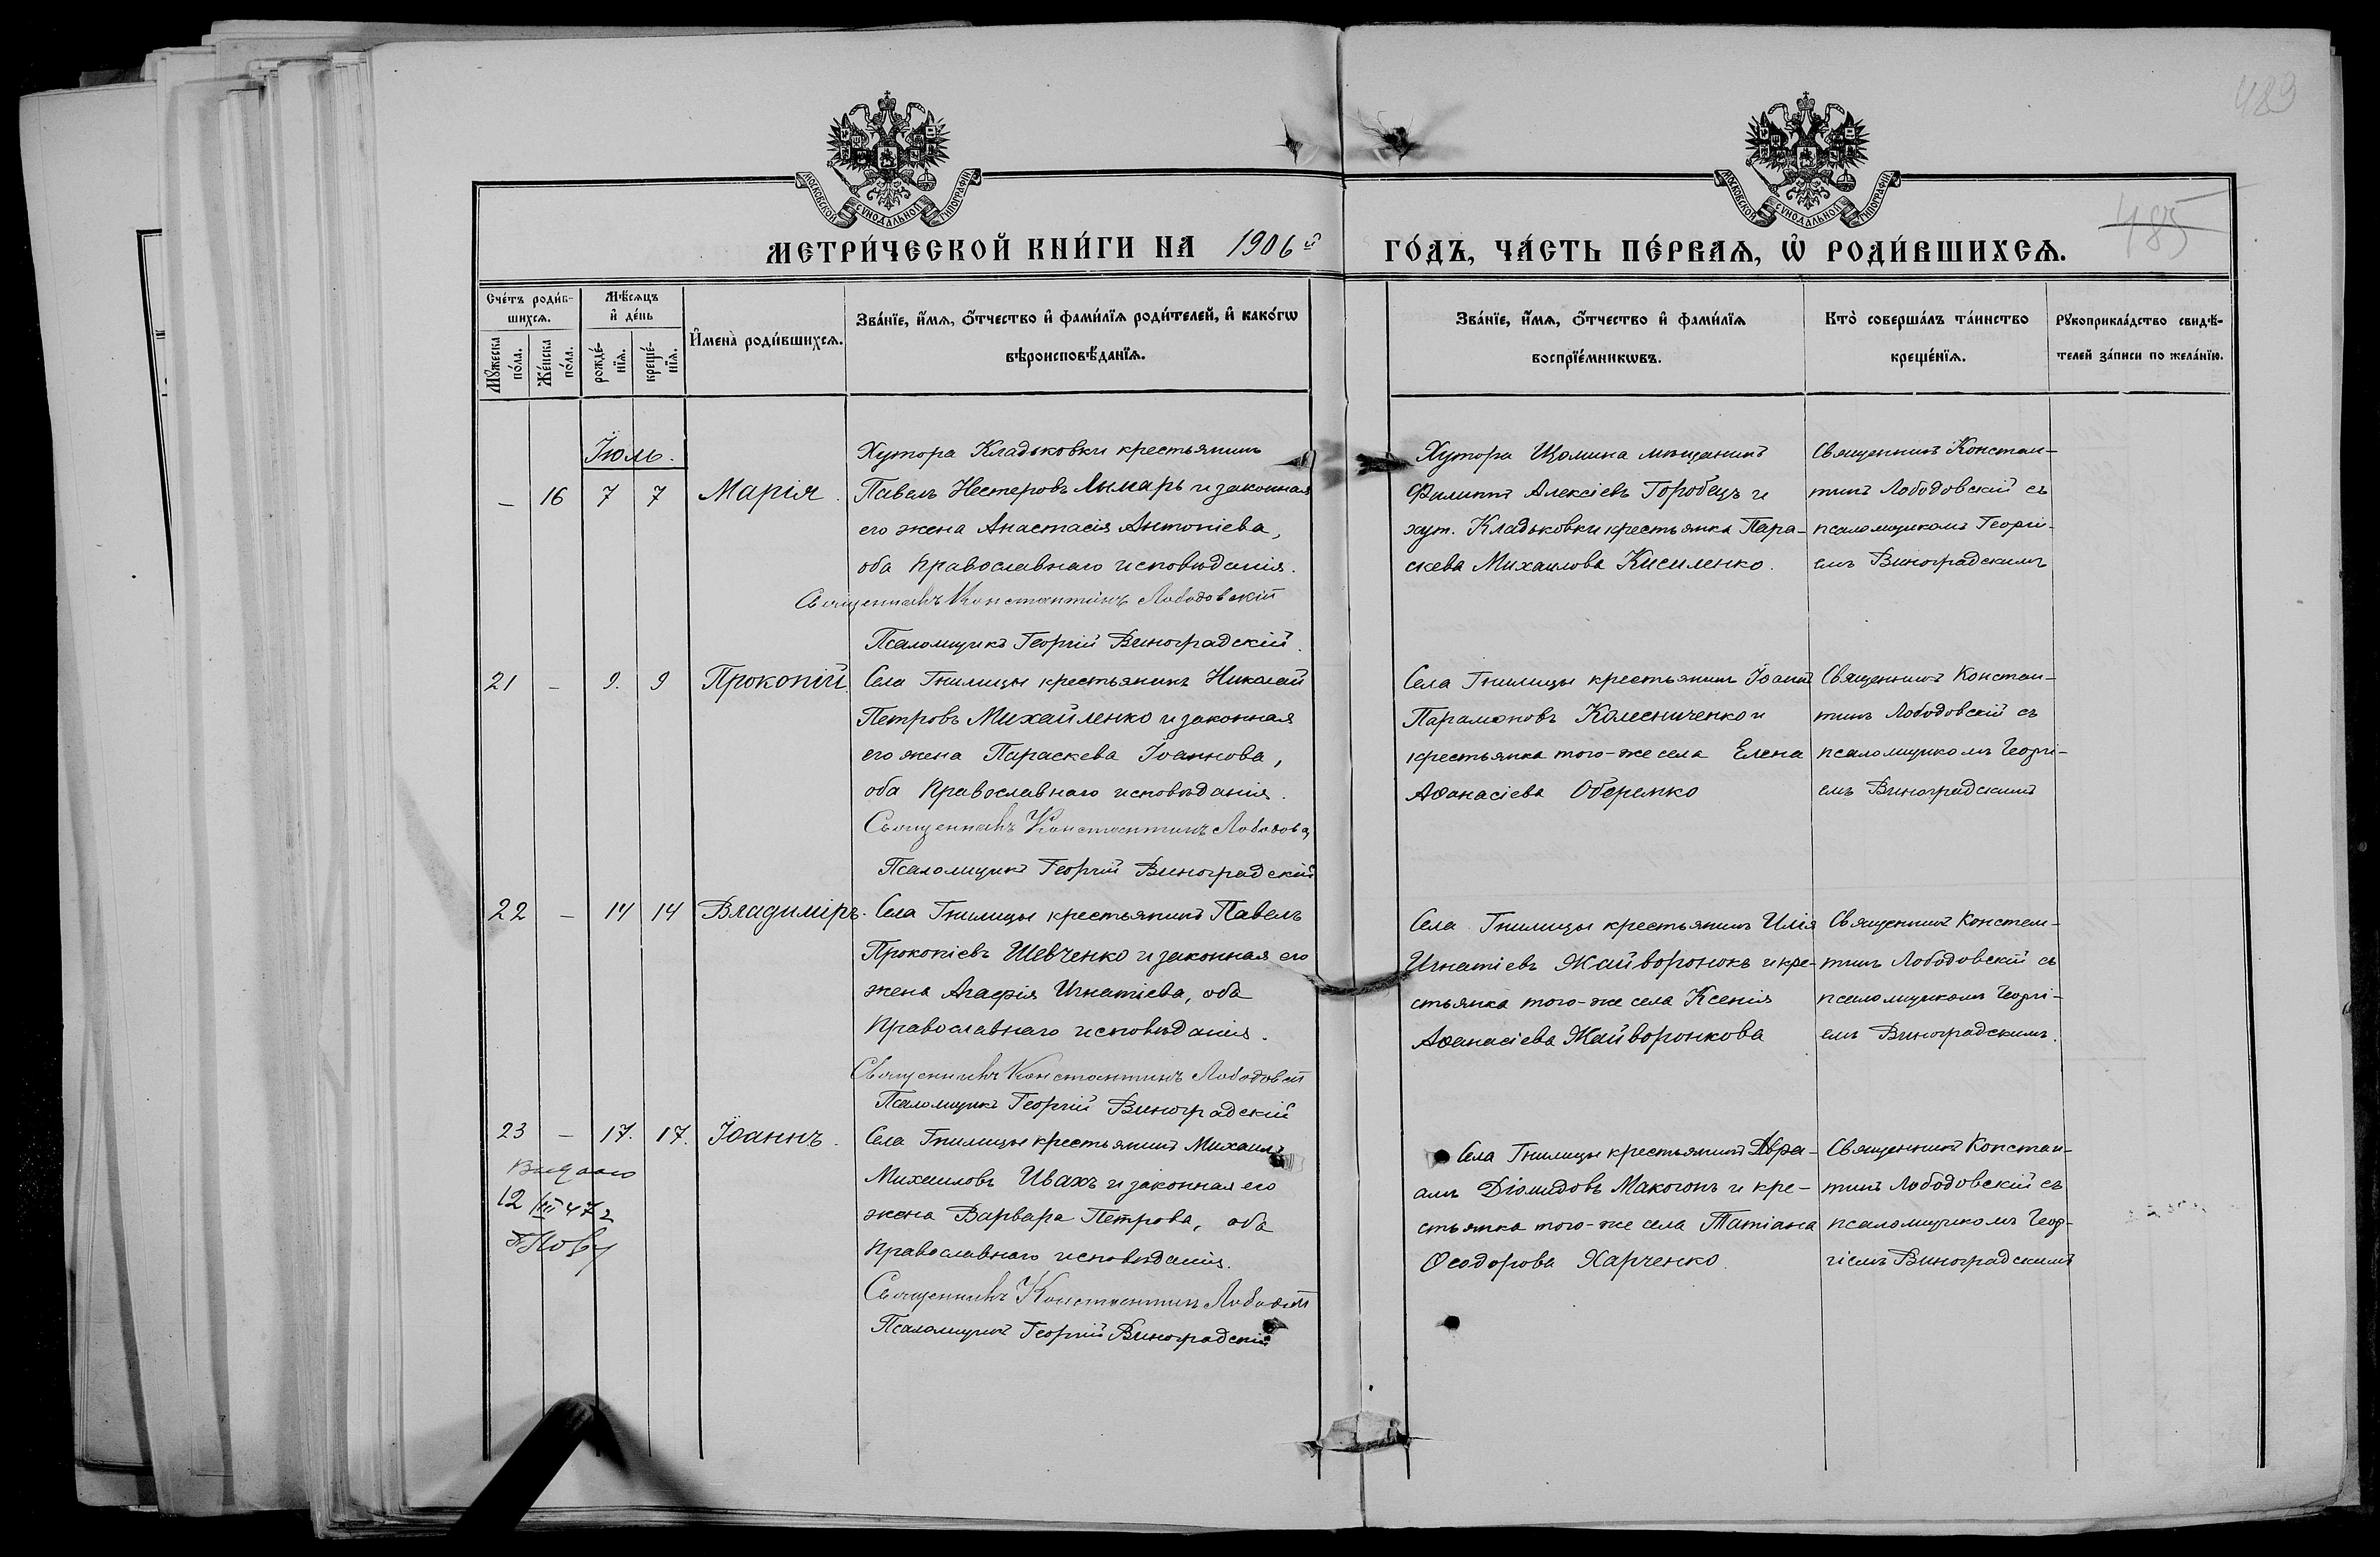 489
485
МОСКОВСКОЙ СѴНОДАЛЬНОЙ ТИПОГРАФІИ
МОСКОВСКОЙ СѴНОДАЛЬНОЙ ТИПОГРАФІИ
МЕТРИ́ЧЕСКОЙ КНИ́ГИ НА 1906й ГО́ДЪ, ЧА́СТЬ ПЕ́РВАѦ, Ѡ҆ РОДИ́ВШИХСѦ.
Сче́тъ роди́в-
шихсѧ.
Мꙋ́жеска по́ла.
Же́нска по́ла.
Мѣ́сѧцъ и҆ де́нь
рожде́-нїѧ.
креще́-нїѧ.
И҆мена̀ роди́вшихсѧ.
Зва́нїе, и҆́мѧ, ѻ҆́тчество и҆ фами́лїѧ роди́телей, и҆ како́гѡ
вѣроисповѣ́данїѧ.
Зва́нїе, и҆́мѧ, ѻ҆́тчество и҆ фами́лїѧ
воспрїе́мникѡвъ.
Кто̀ соверша́лъ та́инство
креще́нїѧ.
Рꙋкоприкла́дство свидѣ́-
телей за́писи по жела́нїю.
Іюль.
— 16 7 7 Марія.
Хутора Кладьковки крестьянинъ
Павелъ Нестеровъ Лимарь и законная
его жена Анастасія Антоніева,
оба Православнаго исповѣданія.
Священникъ Константинъ Лободовскій
Псаломщикъ Георгій Виноградскій.
Хутора Щомина мѣщанинъ
Филиппъ Алексіевъ Горобецъ и
хут. Кладьковки крестьянка Пара-
скева Михаилова Кисиленко.
Священникъ Констан-
тинъ Лободовскій съ
псаломщикомъ Георгі-
емъ Виноградскимъ
21 — 9. 9 Прокопій
Села Гнилицы крестьянинъ Николай
Петровъ Михайленко и законная
его жена Параскева Іоаннова,
оба Православнаго исповѣданія.
Священникъ Константинъ
Псаломщикъ Георгій Виноградскій
Села Гнилицы крестьянинъ Іоаннъ
Парамоновъ Колесниченко и
крестьянка того-же села Елена
Аѳанасіева Оберемко
Священникъ Констан-
тинъ Лободовскій съ
псаломщикомъ Георгі-
емъ Виноградскимъ
22 — 14 14 Владиміръ.
Села Гнилицы крестьянинъ Павелъ
Прокопіевъ Шевченко и законная его
жена Агафія Игнатіева, оба
Православнаго исповѣданія.
Священникъ Константинъ
Псаломщикъ Георгій Виноградскій
Села Гнилицы крестьянинъ Илія
Игнатіевъ Жайворонокъ и кре-
стьянка того-же села Ксенія
Аѳанасіева Жайворонкова
Священникъ Констан-
тинъ Лободовскій съ
псаломщикомъ Георгі-
емъ Виноградскимъ.
23 — 17. 17. Іоаннъ.
12 III 47 г
Села Гнилицы крестьянинъ Михаилъ
Михаиловъ Ивахъ и законная его
жена Варвара Петрова, оба
Православнаго исповѣданія.
Священникъ Константинъ
Псаломщикъ Георгій Виноградскій
Села Гнилицы крестьянинъ Авра-
амъ Діомидовъ Макогонъ и кре-
стьянка того-же села Татіана
Ѳеодорова Харченко.
Священникъ Констан-
тинъ Лободовскій съ
псаломщикомъ Геор-
гіемъ Виноградскимъ